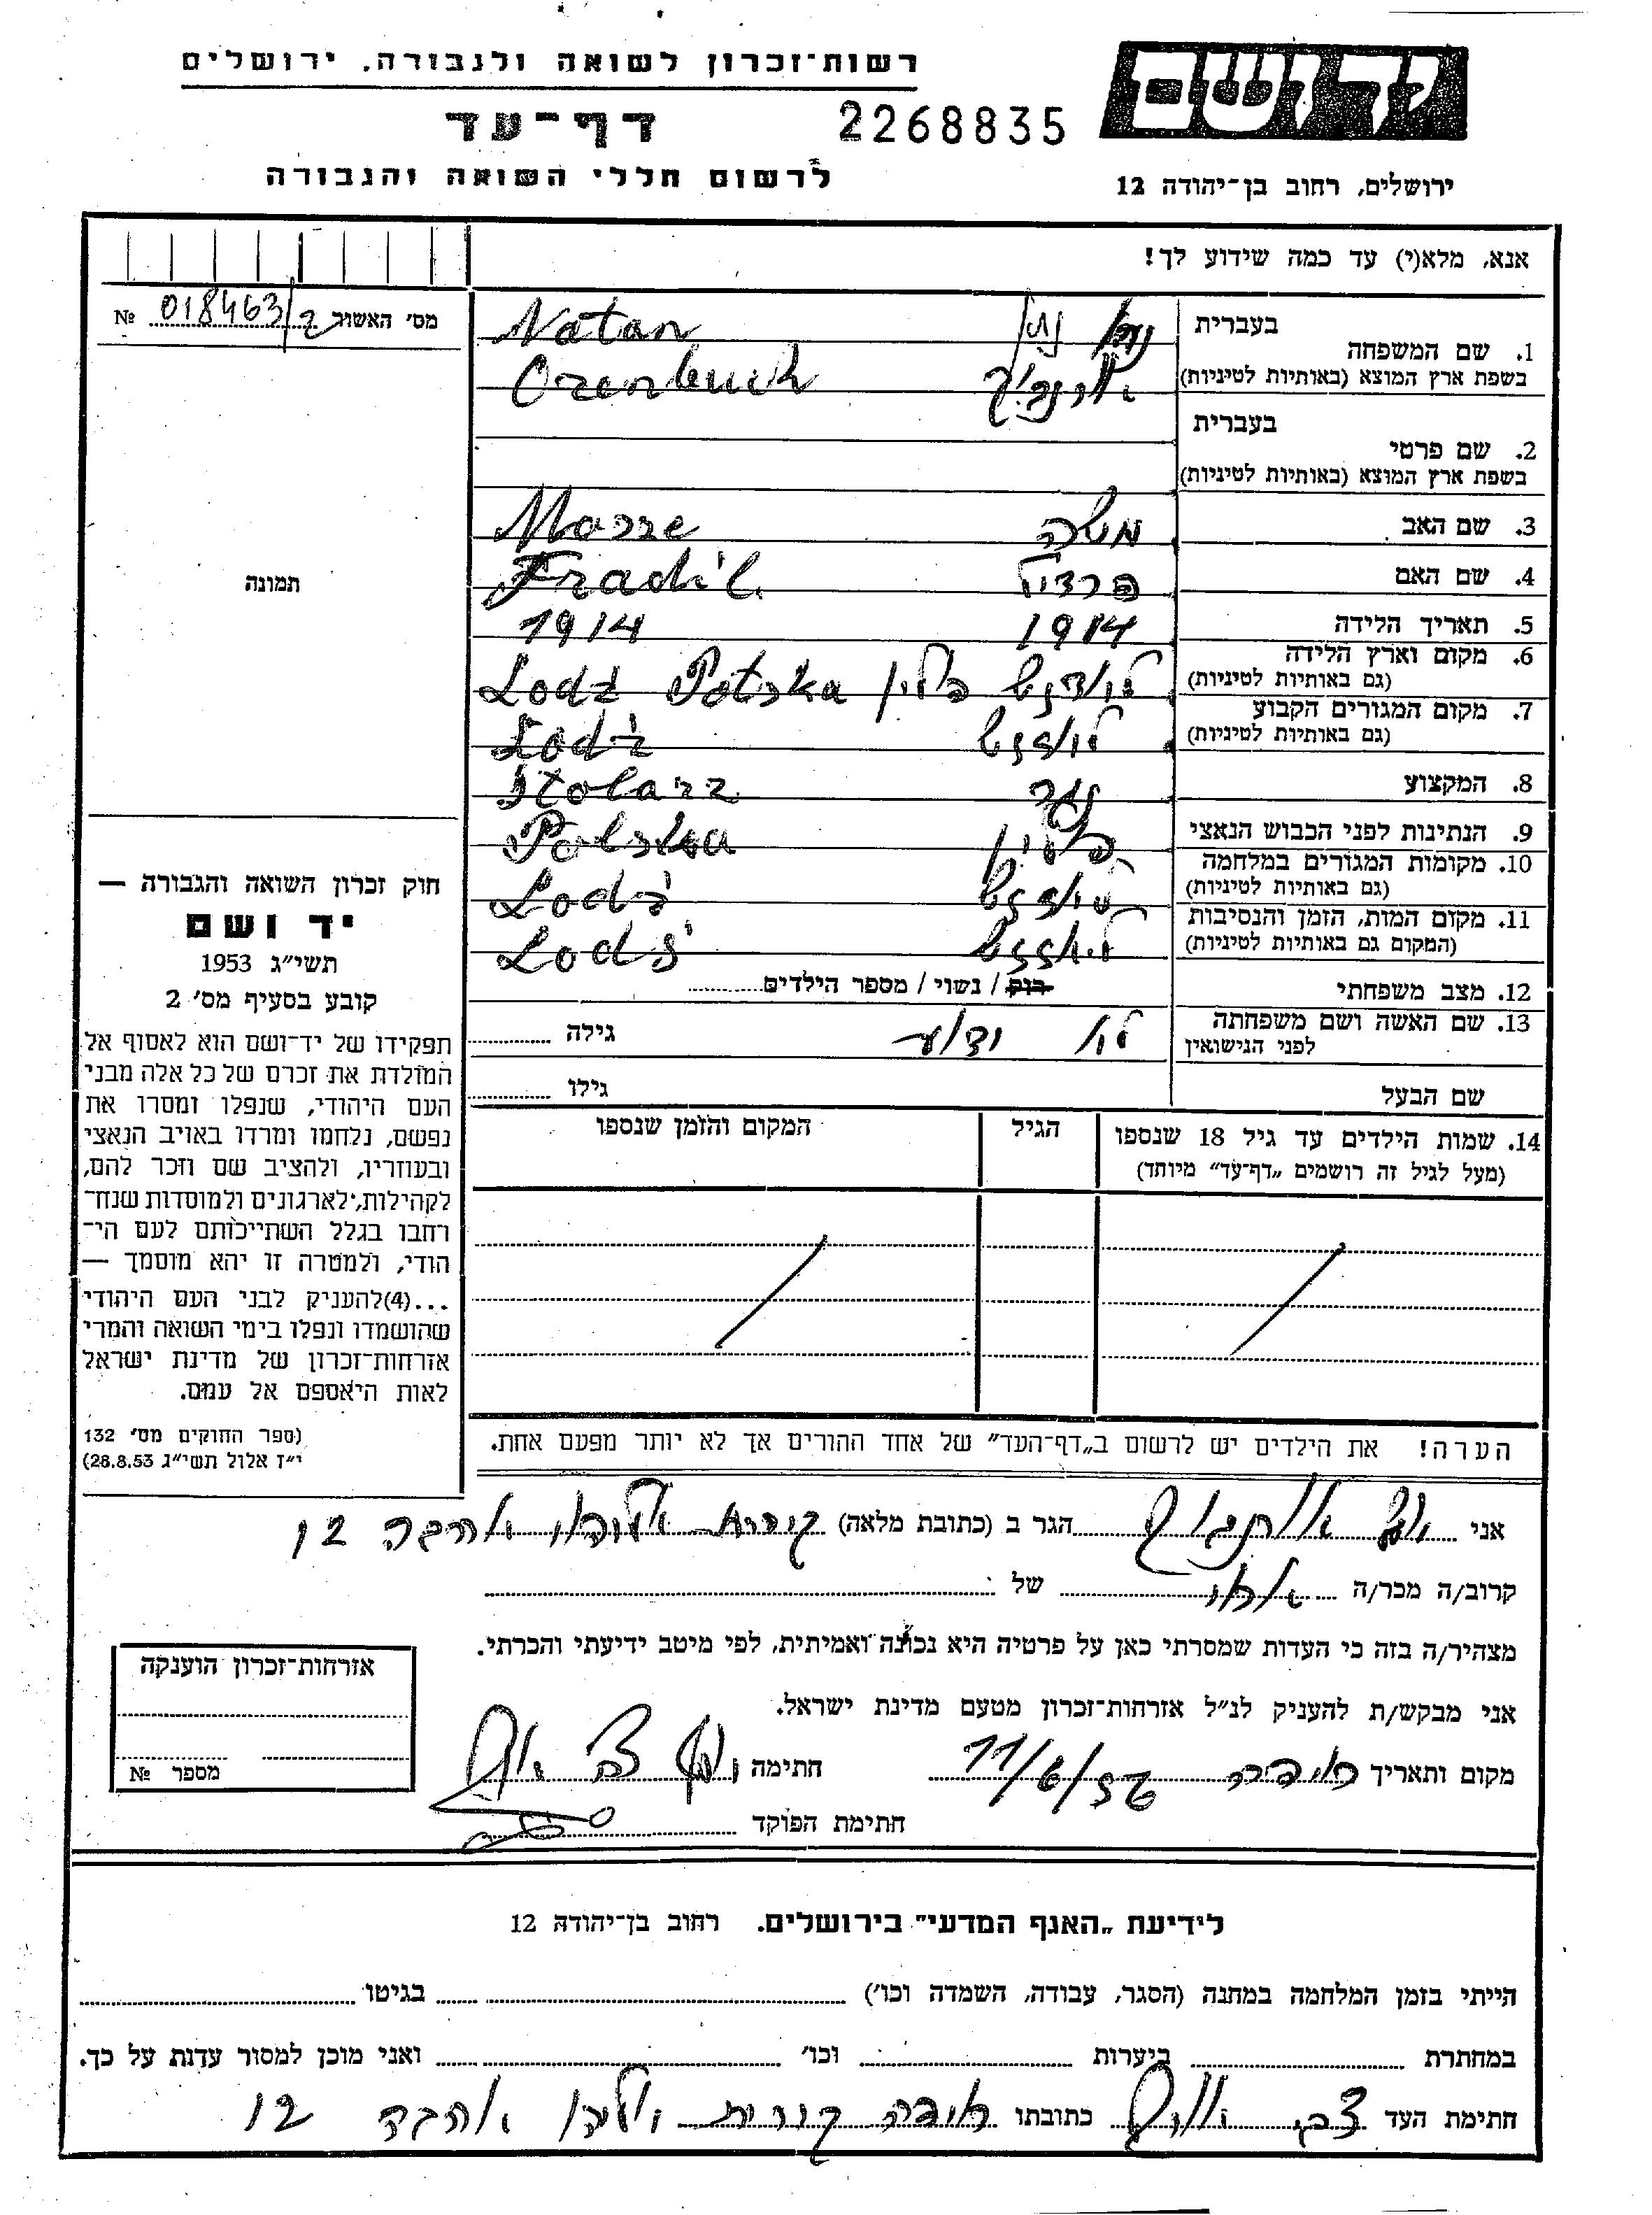 רשות־זכרון לשואה ולגבורה, ירושלים
יד ושם
דף־עד
2268835
לרשום חללי השואה והגבורה
ירושלים, רחוב בן־יהודה 12
אנא, מלא(י) עד כמה שידוע לך!
מס' האשור 018463/2 №
1. שם המשפחה
בעברית
נתן
Natan
בשפת ארץ המוצא (באותיות לטיניות)
Orenbuch
2. שם פרטי
בעברית
בשפת ארץ המוצא (באותיות לטיניות)
3. שם האב משה Mosze
4. שם האם פרדיל Fradil
5. תאריך הלידה 1914 1914
6. מקום וארץ הלידה
(גם באותיות לטיניות)
לודז' פולין Lodz Polska
7. מקום המגורים הקבוע
(גם באותיות לטיניות)
Lodz
8. המקצוע נגר Stolarz
9. הנתינות לפני הכבוש הנאצי פולין Polska
10. מקומות המגורים במלחמה
(גם באותיות לטיניות)
Lodz
11. מקום המות, הזמן והנסיבות
(המקום גם באותיות לטיניות)
Lodz
12. מצב משפחתי רווק / נשוי / מספר הילדים
13. שם האשה ושם משפחתה
לפני הנישואין
לא ידוע
גילה
שם הבעל גילו
14. שמות הילדים עד גיל 18 שנספו
(מעל לגיל זה רושמים „דף־עד" מיוחד)
הגיל
המקום והזמן שנספו
תמונה
חוק זכרון השואה והגבורה —
יד ושם
תשי״ג 1953
קובע בסעיף מס' 2
תפקידו של יד־ושם הוא לאסוף אל
המולדת את זכרם של כל אלה מבני
העם היהודי, שנפלו ומסרו את
נפשם, נלחמו ומרדו באויב הנאצי
ובעוזריו, ולהציב שם וזכר להם,
לקהילות, לארגונים ולמוסדות שנח־
רחבו בגלל השתייכותם לעם הי־
הודי, ולמטרה זו יהא מוסמך —
...(4)להעניק לבני העם היהודי
שהושמדו ונפלו בימי השואה והמרי
אזרחות־זכרון של מדינת ישראל
לאות היאספם אל עמם.
(ספר החוקים מס' 132
י״ז אלול תשי״ג 28.8.53)
הערה! את הילדים יש לרשום ב„דף־העד" של אחד ההורים אך לא יותר מפעם אחת.
אני הגר ב (כתובת מלאה) קירית אהבה 12
קרוב/ה מכר/ה של
מצהיר/ה בזה כי העדות שמסרתי כאן על פרטיה היא נכונה ואמיתית, לפי מיטב ידיעתי והכרתי.
אני מבקש/ת להעניק לנ״ל אזרחות־זכרון מטעם מדינת ישראל.
מקום ותאריך 11/6/56 חתימה
חתימת הפוקד
אזרחות־זכרון הוענקה
מספר №
לידיעת „האגף המדעי" בירושלים. רחוב בן־יהודה 12
הייתי בזמן המלחמה במחנה (הסגר, עבודה, השמדה וכו') בגיטו
במחתרת ביערות וכו' ואני מוכן למסור עדות על כך.
חתימת העד צבי כתובתו קירית אהבה 12